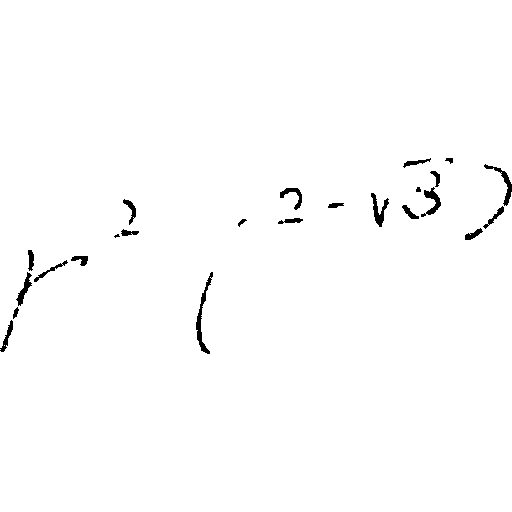 r² ( · 2 - √3 )